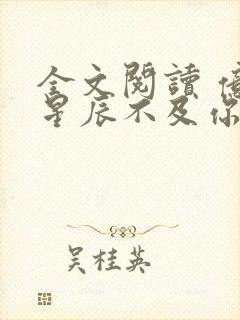 全文閱讀 億
星辰不及你
吴桂英